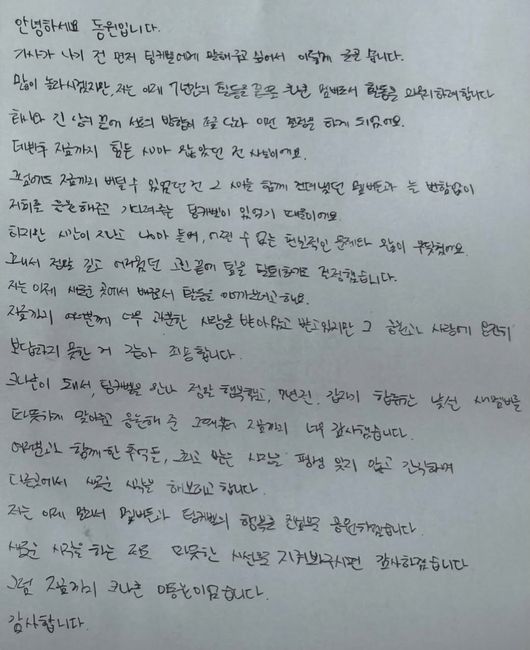 안녕하세요 동원입니다.
기사가 나기 전 먼저 팅커벨에게 말해주고 싶어서 이렇게 글을 씁니다.
많이 놀라시겠지만, 저는 이제 7년간의 활동을 끝으로 크나큰 멤버로서 활동을 마무리하려 합니다
회사와 긴 상의 끝에 서로의 방향이 조금 달라 이런 결정을 하게 되었어요.
데뷔후 지금까지 힘든 시간이 많았었던 건 사실이에요.
그럼에도 지금까지 버틸 수 있었던 건 그 시간을 함께 견뎌냈던 멤버들과 늘 변함없이
저희를 응원해주고 기다려주는 팅커벨이 있었기 때문이에요.
하지만 시간이 지나고 나이가 들며, 어쩔 수 없는 현실적인 문제와 많이 부딪혔어요.
그래서 정말 길고 어려웠던 고민 끝에 팀을 탈퇴하기로 결정했습니다.
저는 이제 새로운 곳에서 배우로서 활동을 이어가보려고 해요.
지금까지 여러분께 너무 과분한 사랑을 받아왔고 받고있지만 그 응원과 사랑에 온전히
보답하지 못한 거 같아 죄송합니다.
크나큰이 돼서, 팅커벨을 만나 정말 행복했고, 7년전, 갑자기 합류한 낯선 새멤버를
따뜻하게 맞아주고 응원해 준 그때부터 지금까지 너무 감사했습니다.
여러분과 함께한 추억들, 그리고 모든 시간을 평생 잊지 않고 간직하며
다른곳에서 새로운 시작을 해보려고 합니다.
저는 이제 멀리서 멤버들과 팅커벨의 행복을 진심으로 응원하겠습니다.
새로운 시작을 하는 저도 따뜻한 시선으로 지켜봐주시면 감사하겠습니다
그럼 지금까지 크나큰 이동원이었습니다.
감사합니다.